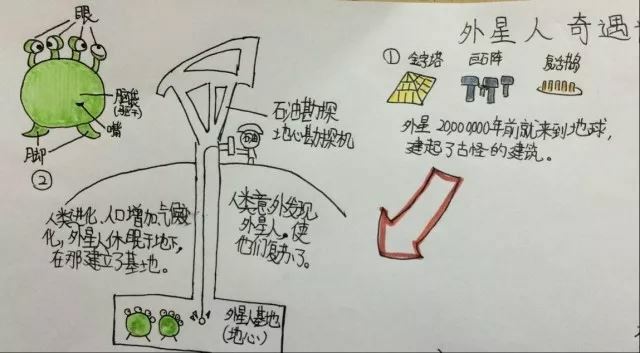 外星人奇遇
①
金字塔
巨石阵
复活岛
外星20000000年前就来到地球,
建起了古怪的建筑。
眼
脑袋
(躯干)
嘴
脚
②
石油勘探
地心勘探机
石油
人类进化、人口增加气候
化,外星人休眠于地下,
在那建立了基地。
人类意外发现
外星人,使
他们复办了。
外星人基地
(地心)